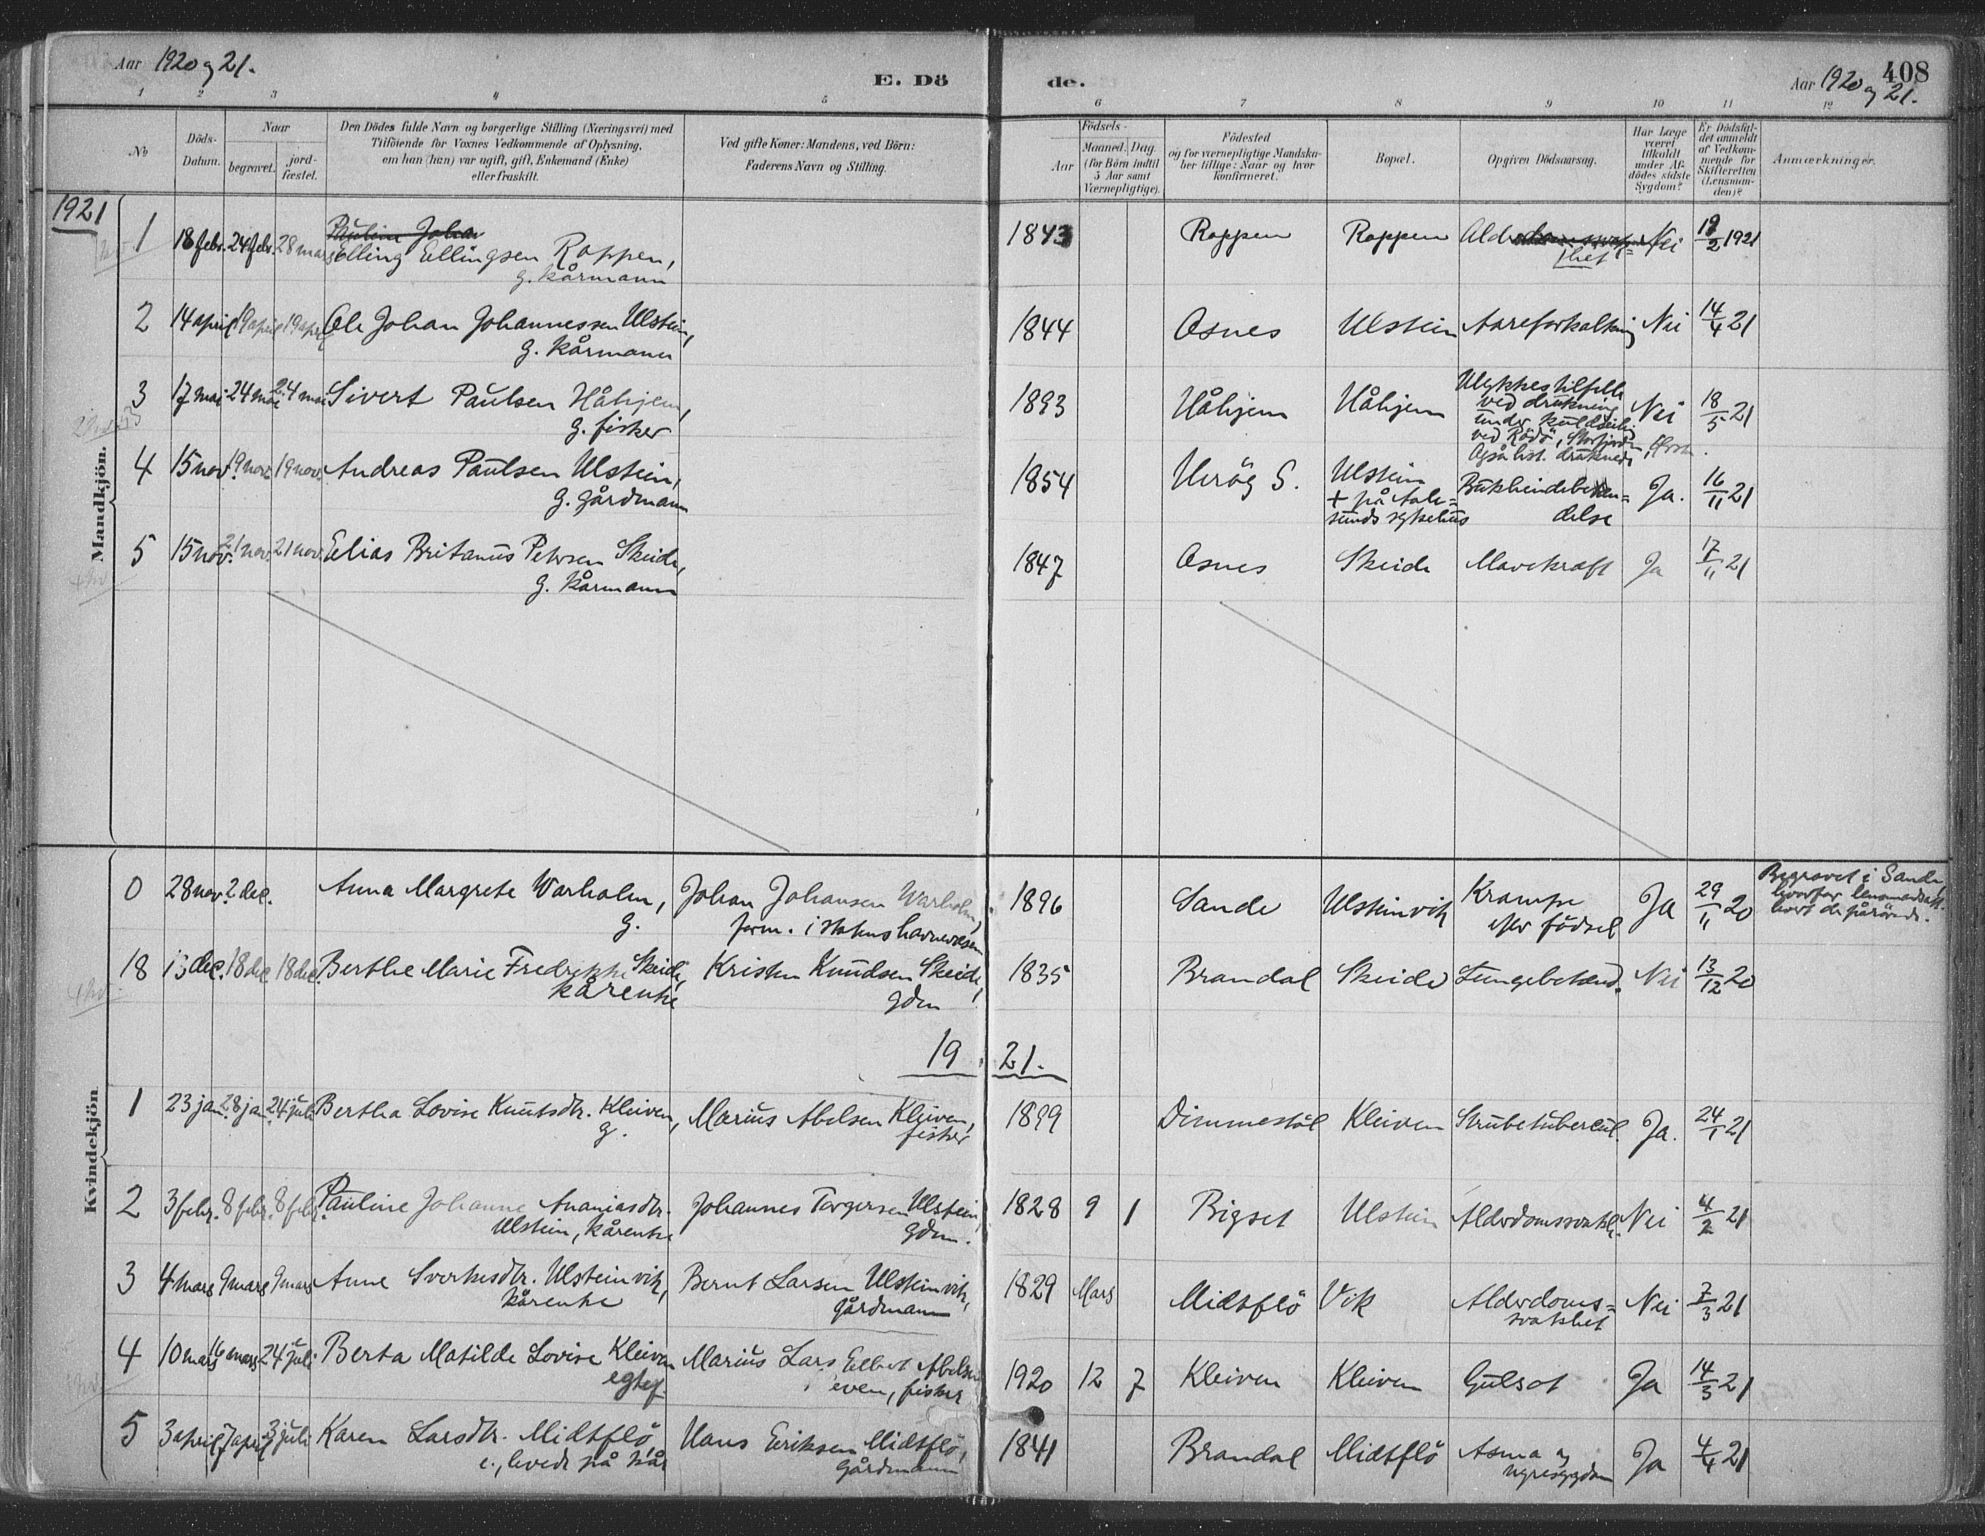 Aar 1920 og 21.
E. Dö de.
Aar 1920 og 21.
408
1 2 3 4 5 6 7 8 9 10 11 12
No
Döds-Datum.
Naar
begravet.
jord-fæstet.
Den Dödes fulde Navn og borgerlige Stilling (Næringsvei) med
Tilföiende for Voxnes Vedkommende af Oplysning,
om han (hun) var ugift, gift, Enkemand (Enke)
eller fraskilt.
Ved gifte Koner: Mandens, ved Börn:
Faderens Navn og Stilling.
Födsels-
Aar
Maaned. Dag
(for Börn indtil
5 Aar samt
Værnepligtige).
Födested
og for værnepligtige Mandska-
ber tillige: Naar og hvor
konfirmeret.
Bopæl.
Opgiven Dödsaarsag.
Har Læge
været
tilkaldt
under Af-
dödes sidste
Sygdom?
Er Dödsfal-
det anmeldt
af Vedkom-
mende for
Skifteretten
(Lensman-
den)?
Anmærkninger.
1921
Mandkjön.
Pauline Johan
1 18 febr. 24 febr. 28 mars Elling Ellingsen Roppen, 1843 Roppen Roppen Alderdomssvak= Nei 19/2 1921
g. kårmann
het
2 14 april 19 april 19 april Ole Johan Johannessen Ulstein, 1844 Osnes Ulstein Aareforkalkning Nei 14/4 21
g. kårmann
3 17 mai 24 mai 24 mai Sivert Paulsen Håhjem, 1893 Håhjem Håhjem Ulykkestilfelle Nei 18/5 21
g. fisker
ved drukning
under kuldseiling
ved Rödö, Storfjorden,
4 15 nov. 19 nov. 19 nov. Andreas Paulsen Ulstein, 1854 Heröy S. Ulstein Bukhindebeten= Ja. 16/11 21
g. gårdmann
+ på Aale=
sunds sykehus
delse
5 15 nov. 21 nov. 21 nov. Elias Britanus Petersen Skeide, 1847 Osnes Skeide Mavekræft Ja 17/11 21
g. kårmann
Kvindekjön
0 28 nov. 2 dec. Anna Margrete Warholm, Johan Johansen Warholm, 1896 Sande Ulsteinvik Krampe Ja 29/11 20 Begravet i Sande,
g.
form. i statens havnevæsen
efter födsel
hvorfor lensmandsatt.
18 13 dec. 18 dec. 18 dec. Berthe Marie Fredrikke Skeide, Kristen Knudsen Skeide, 1835 Brandal Skeide Lungebetænd. Nei 13/12 20
kårenke
gdm
19 21.
1 23 jan. 28 jan. 24 juli Bertha Lovise Knutsdtr. Kleiven, Marius Abelsen Kleiven, 1899 Dimmestöl Kleiven Strubetubercul. Ja. 24/1 21
g.
fisker
2 3 febr. 8 febr. 8 febr. Pauline Johanne Ananiasdtr. Johannes Torgersen Ulstein 1828 9 1 Bigset Ulstein Alderdomssvakh. Nei 4/2 21
Ulstein, kårenke
gdm.
3 4 mars 9 mars 9 mars Anne Sverkesdtr. Ulsteinvik, Bernt Larsen Ulsteinvik, 1829 Mars Midtflö Vik Alderdoms= Nei 7/3 21
kårenke
gårdmann
svakhet
4 10 mars 16 mars 24 juli Berta Matilde Lovise Kleiven Marius Lars Elbert Abelsen 1920 12 7 Kleiven Kleiven Gulsot Ja 14/3 21
egtef
even, fisker
5 3 april 7 april 3 juli Karen Larsdtr. Midtflö, Hans Eriksen Midtflö, 1841 Brandal Midtflö Asma og Ja 4/4 21
e., levede på kår
gårdmann
nyresygdom